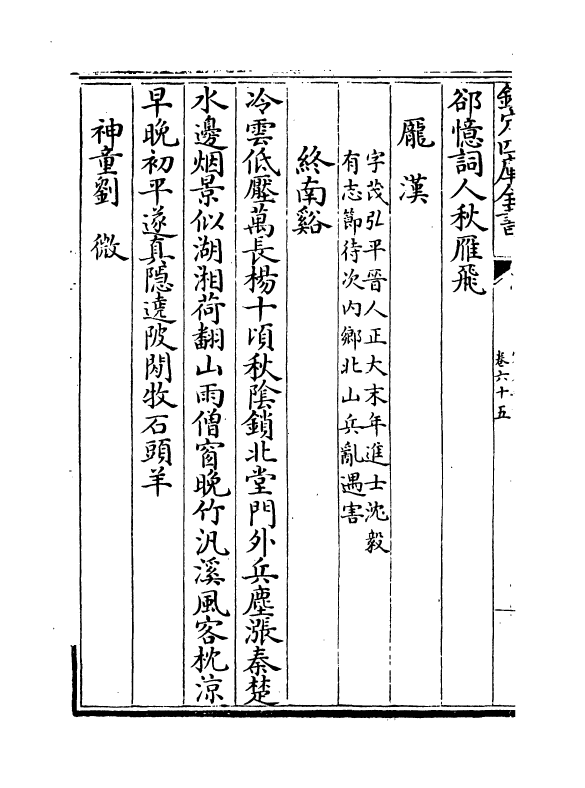 欽定四庫全書
卷六十五
郤憶詞人秋雁飛
龎漢
字茂弘平晉人正大末年進士沈毅
有志節待次内鄉北山兵亂遇害
終南谿
冷雲低壓萬長楊十頃秋陰鎖北堂門外兵塵漲秦楚
水邊烟景似湖湘荷翻山雨僧窗晚竹汎溪風客枕涼
早晚初平遂真隱遶陂閒牧石頭羊
神童劉微